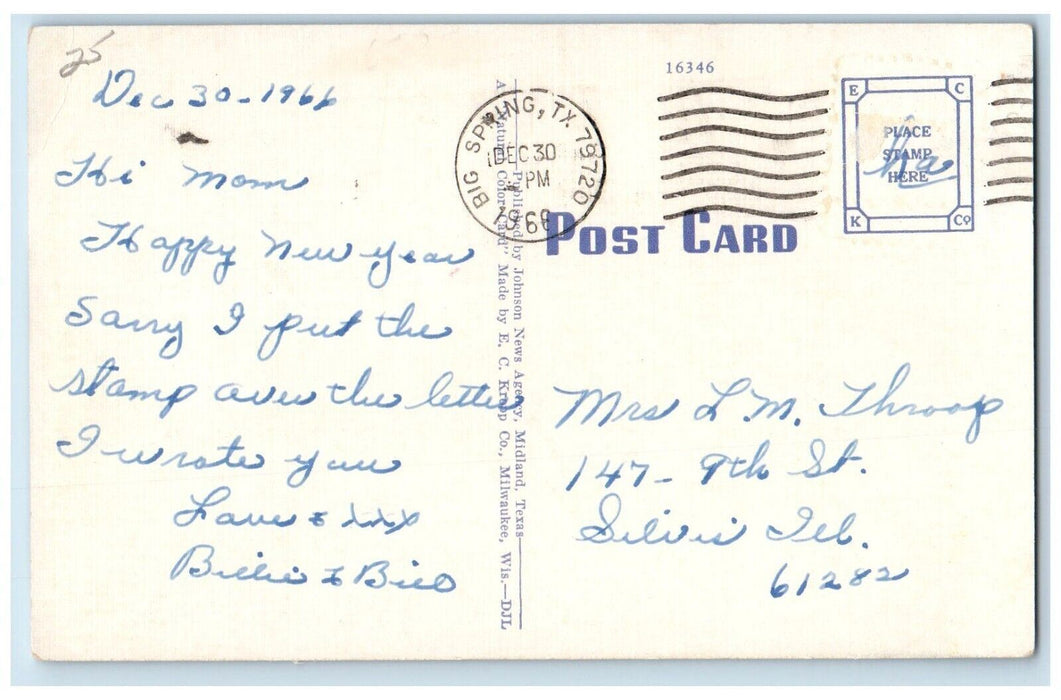 25
Dec 30-1966
Hi Mom
Happy New Year
Sorry I put the
stamp over the letter
I wrote you
Love & xxx
Billie & Bill
16346
BIG SPRING, TX 79720
DEC 30
PM
1966
PLACE
STAMP
HERE
E C
K Co
POST CARD
Published by Johnson News Agency, Midland, Texas
A "Natural Color Card" Made by E. C. Kropp Co., Milwaukee, Wis.—DJL
Mrs L.M. Throop
147- 9th St.
Silvis Ill.
61282